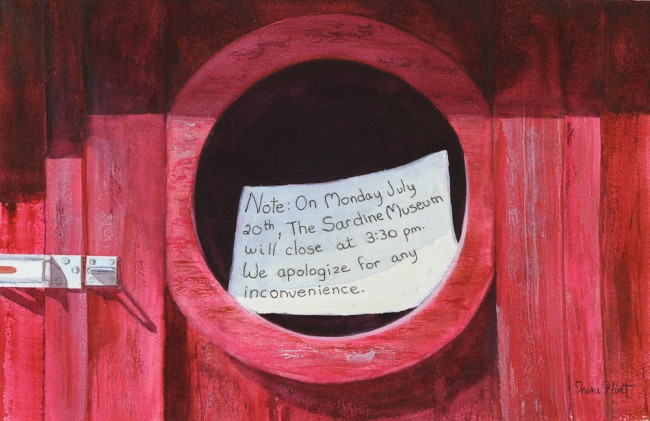 Note: On Monday July
20th, The Sardine Museum
will close at 3:30 pm.
We apologize for any
inconvenience.